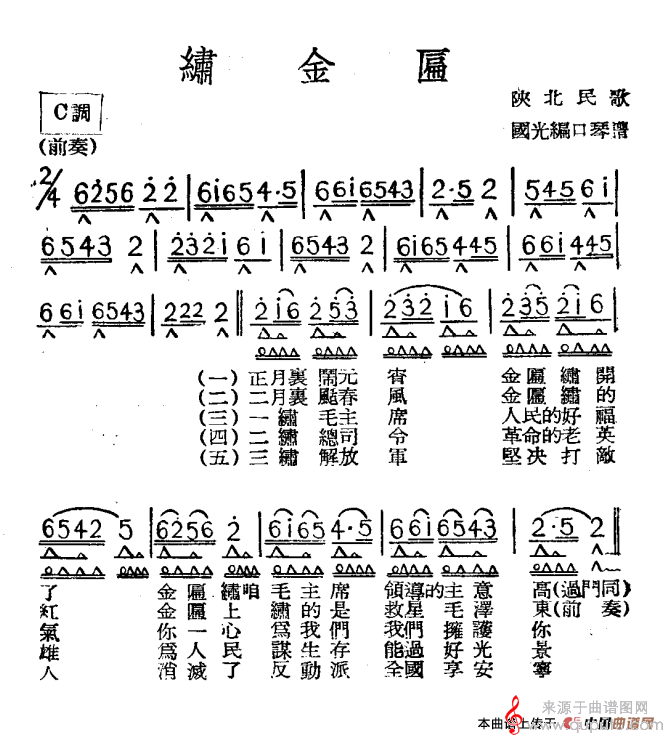 繡金匾
C調
陝北民歌
國光編口琴譜
(前奏)
2/4 6256 22 | 6i654·5 | 66i6543 | 2·5 2 | 5445 6i |
6543 2 | 232i 6i | 6543 2 | 6i65445 | 66i 445 |
66i 6543 | 222 2 ‖ 2i6 253 | 232 i6 | 235 2i6
(一)正月裏 鬧元 宵 金匾繡開
(二)二月裏 颳春 風 金匾繡的
(三)一繡 毛主 席 人民的好福
(四)二繡 總司 令 革命的老英
(五)三繡 解放 軍 堅决打敵
6542 5 | 6256 2 | 6i65 4·5 | 66i6543 | 2·5 2 ‖
了 金匾繡咱 毛主席 領導的主意 高(過門同
紅 金匾上 繡的是 救星毛澤 東(前奏)
氣 你一心 爲我們 我們擁護 你
雄 爲人民 謀生存 能過好光 景
人 消滅了 反動派 全國享安 寧
来源于曲谱图网
www.qupu
本曲谱上传于 中国曲谱网